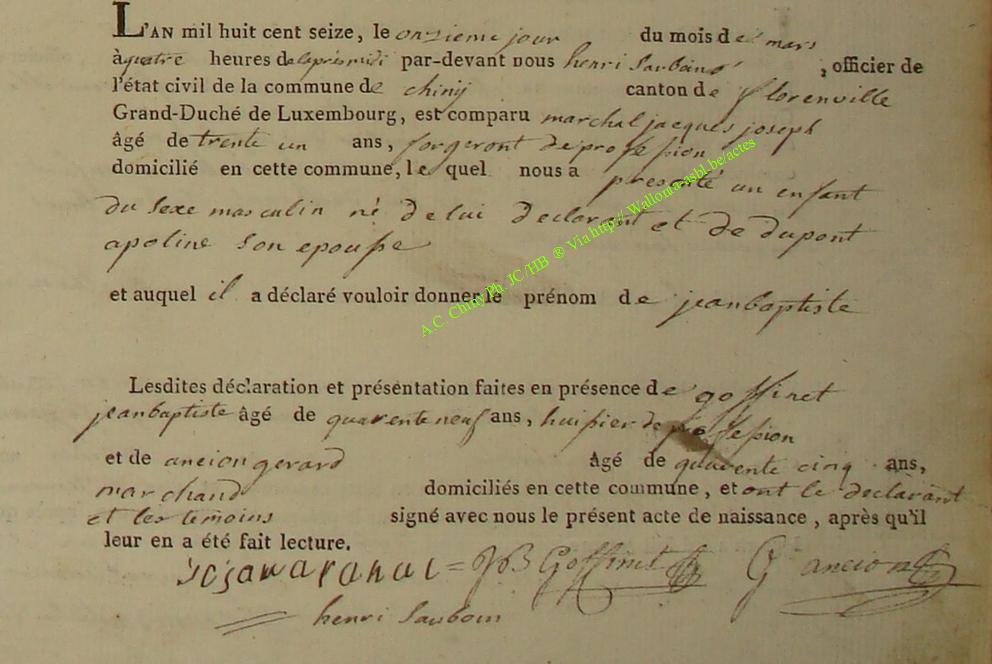 L'AN mil huit cent seize, le onzieme jour du mois de mars
à quatre heures de lapresmidi par-devant nous henri Sauboin , officier de
l'état civil de la commune de chiny canton de florenville
Grand-Duché de Luxembourg, est comparu marchal jacques joseph
âgé de trente un ans, forgeront de profession
domicilié en cette commune, le quel nous a presenté un enfant
du sexe masculin né de lui declarant et de dupont
apoline son epouse
et auquel il a déclaré vouloir donner le prénom de jean baptiste
Lesdites déclaration et présentation faites en présence de goffinet
jean baptiste âgé de quarente neuf ans, huissier de profession
et de ancion gerard âgé de quarente cinq ans,
marchand domiciliés en cette commune, et ont le declarant
et les temoins signé avec nous le présent acte de naissance, après qu'il
leur en a été fait lecture.
JB Goffinet G ancion
henri Sauboin
A.C. Chiny Ph. JC/HB ® Via http:// Wallonia-asbl.be/actes